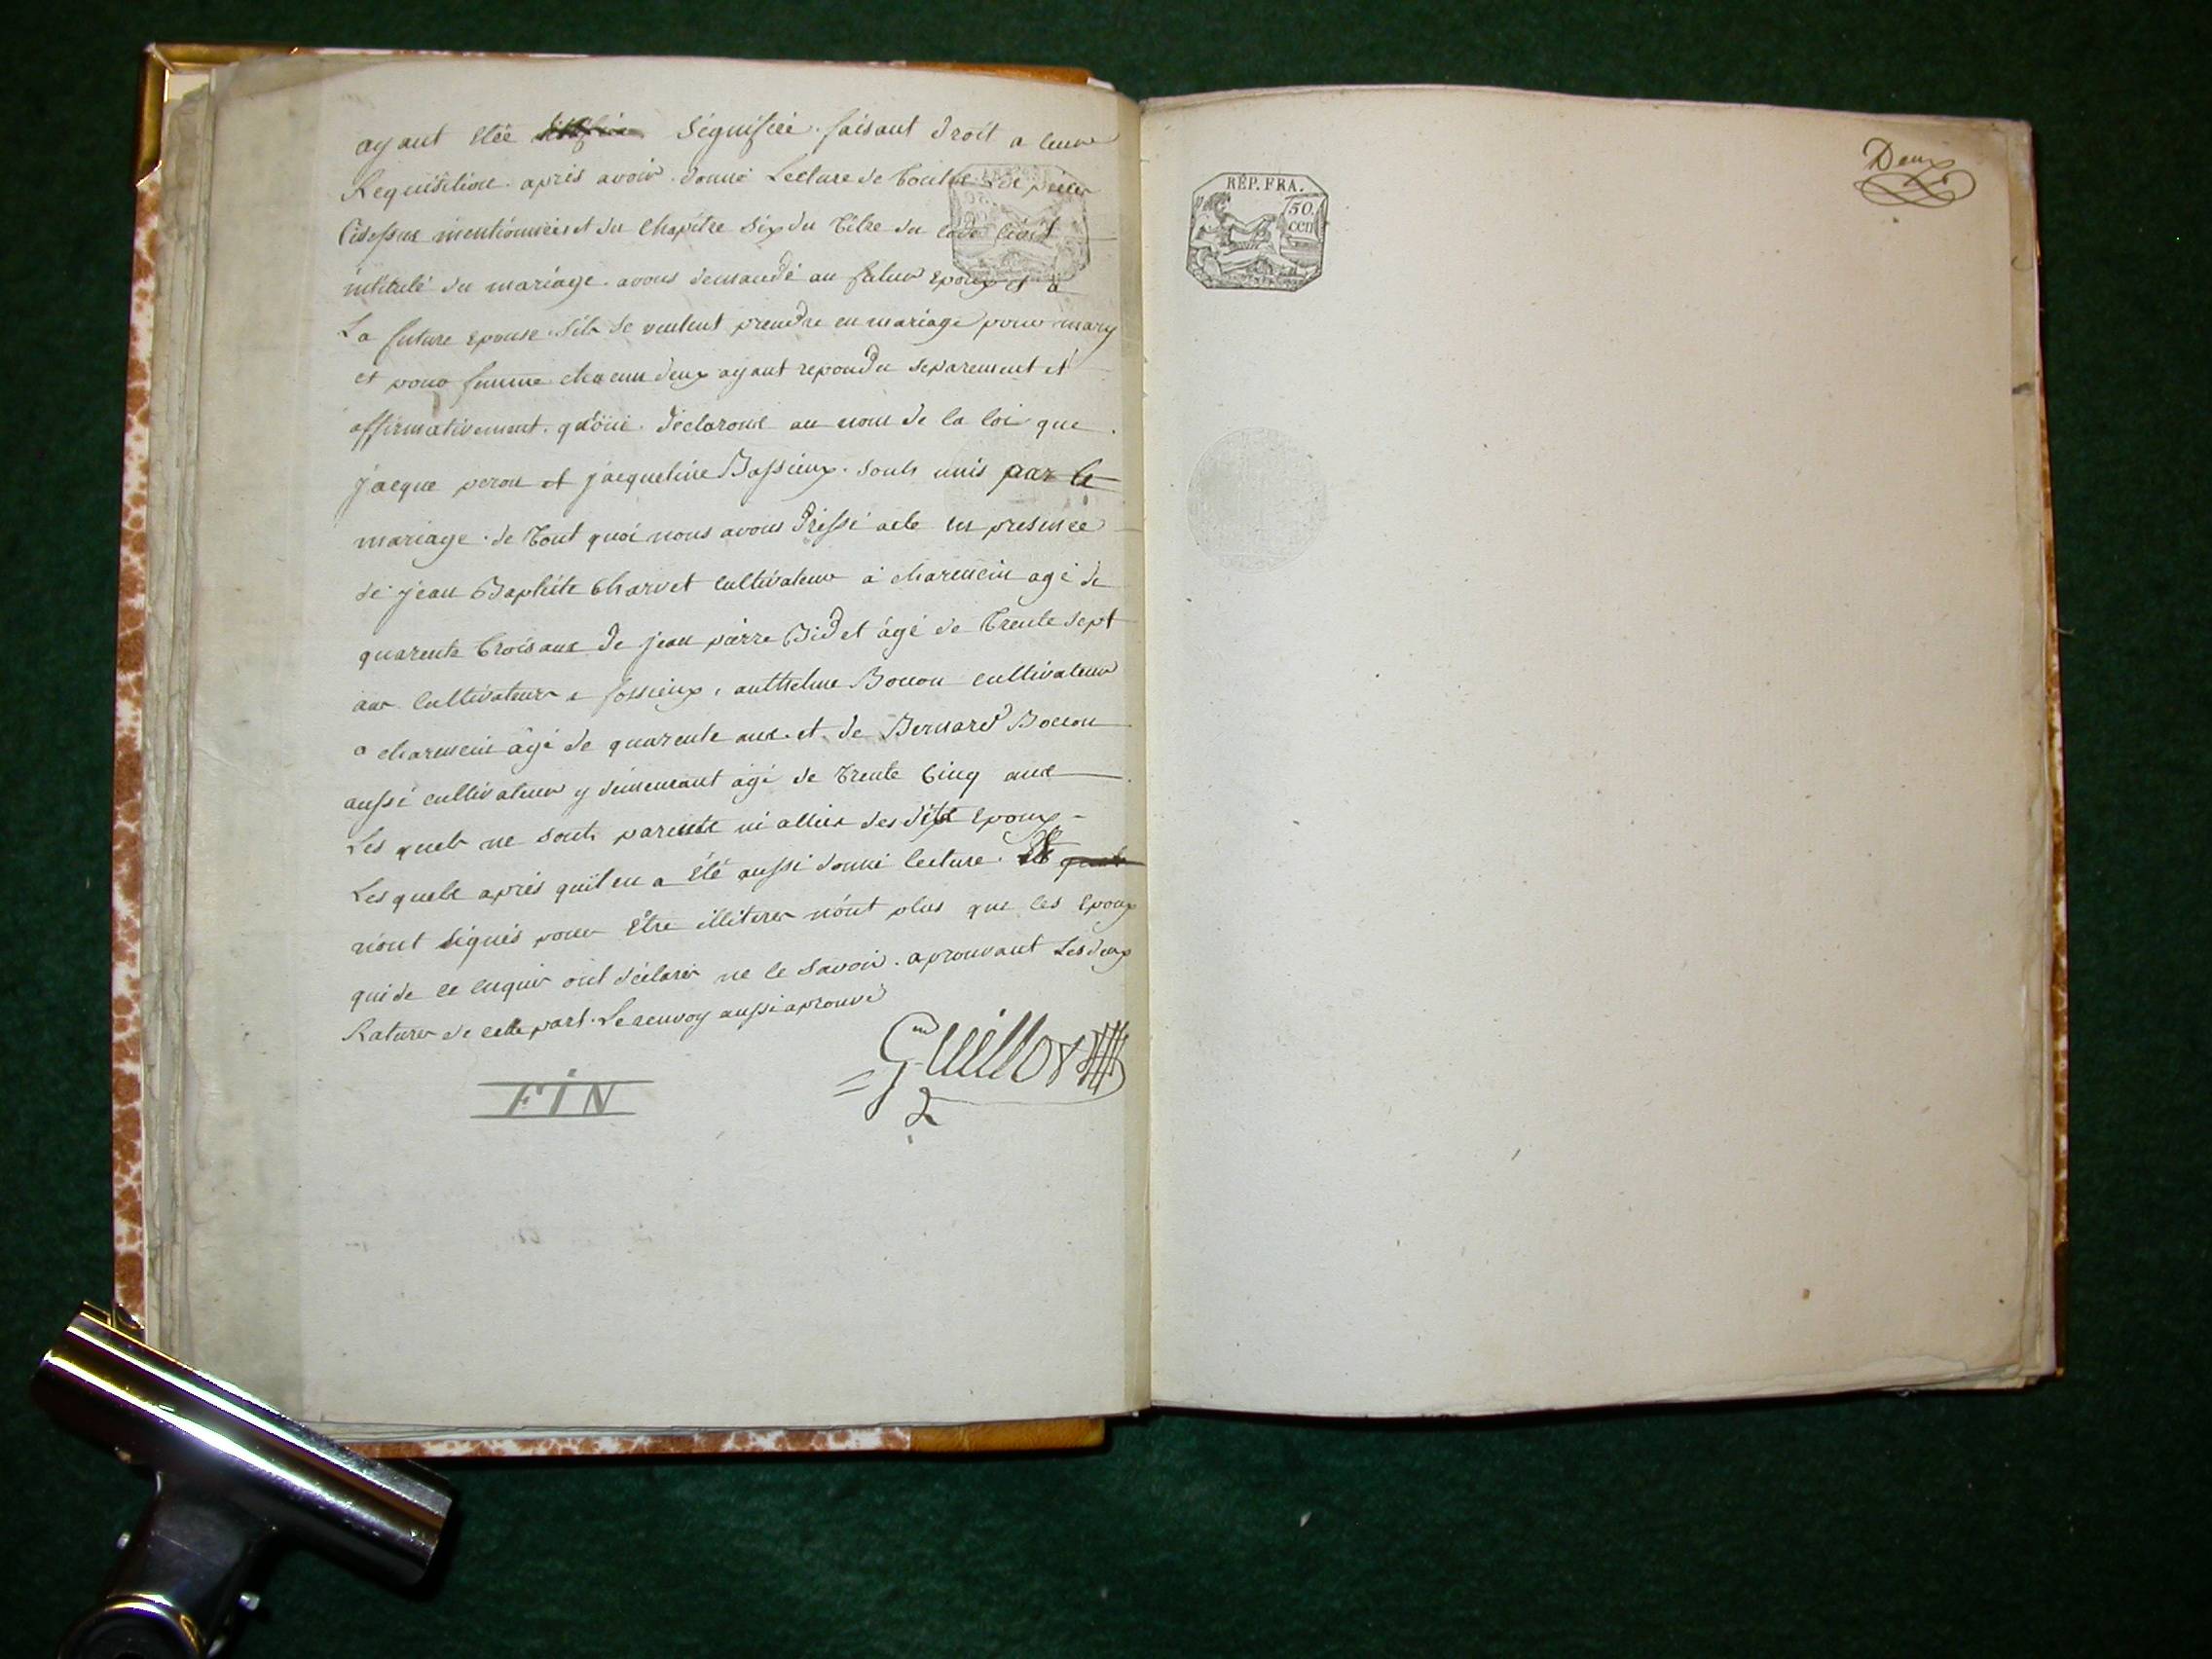 ayant étée signifiée. faisant droit a leur
Requisition. après avoir. donné Lecture de toutes les pièces
cidessus mentionnées et du chapitre six du titre du code civil
intitulé du mariage. avons demandé au futur epoux et a
La future epouse. s'ils se veulent prendre en mariage pour mary
et pour femme chacun deux ayant repondu separement et
affirmativement. qu'oüi. déclarons au nom de la loi que
jacque peron et jacqueline Bassieux. sonts unis par le
mariage. de tout quoi nous avons dréssé acte en presence
de jean Baptiste Charvet cultivateur à charencin agé de
quarente trois ans de jean pierre Bidet âgé de trente sept
ans cultivateur a fossieux, anthelme Bocon cultivateur
a charencin âgé de quarente ans. et de Bernard Bocon
aussi cultivateur y demeurant âgé de trente cinq ans
Les quels ne sonts parents ni alliés des dits epoux
Lesquels après qu'il en a été aussi donné lecture.
n'ont signés pour être illiterés n'ont plus que les epoux
qui de ce enquis ont déclarés ne le savoir. aprouvant les deux
Ratures de cette part. Le renvoy aussi aprouvé
Guillot
FIN
Deux
RÉP. FRA.
50.
cen